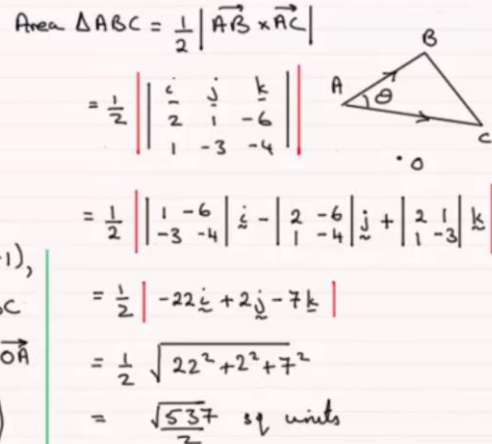 Area ΔABC = 1/2 | AB→ × AC→ |
= 1/2 | | i j k |
| 2 1 -6 |
| 1 -3 -4 | |
A
B
C
θ
O
= 1/2 | | 1 -6 | i - | 2 -6 | j + | 2 1 | k |
| -3 -4 | | 1 -4 | | 1 -3 |
-1),
= 1/2 | -22i + 2j - 7k |
BC
OA→
= 1/2 √(22² + 2² + 7²)
= √537/2 sq units